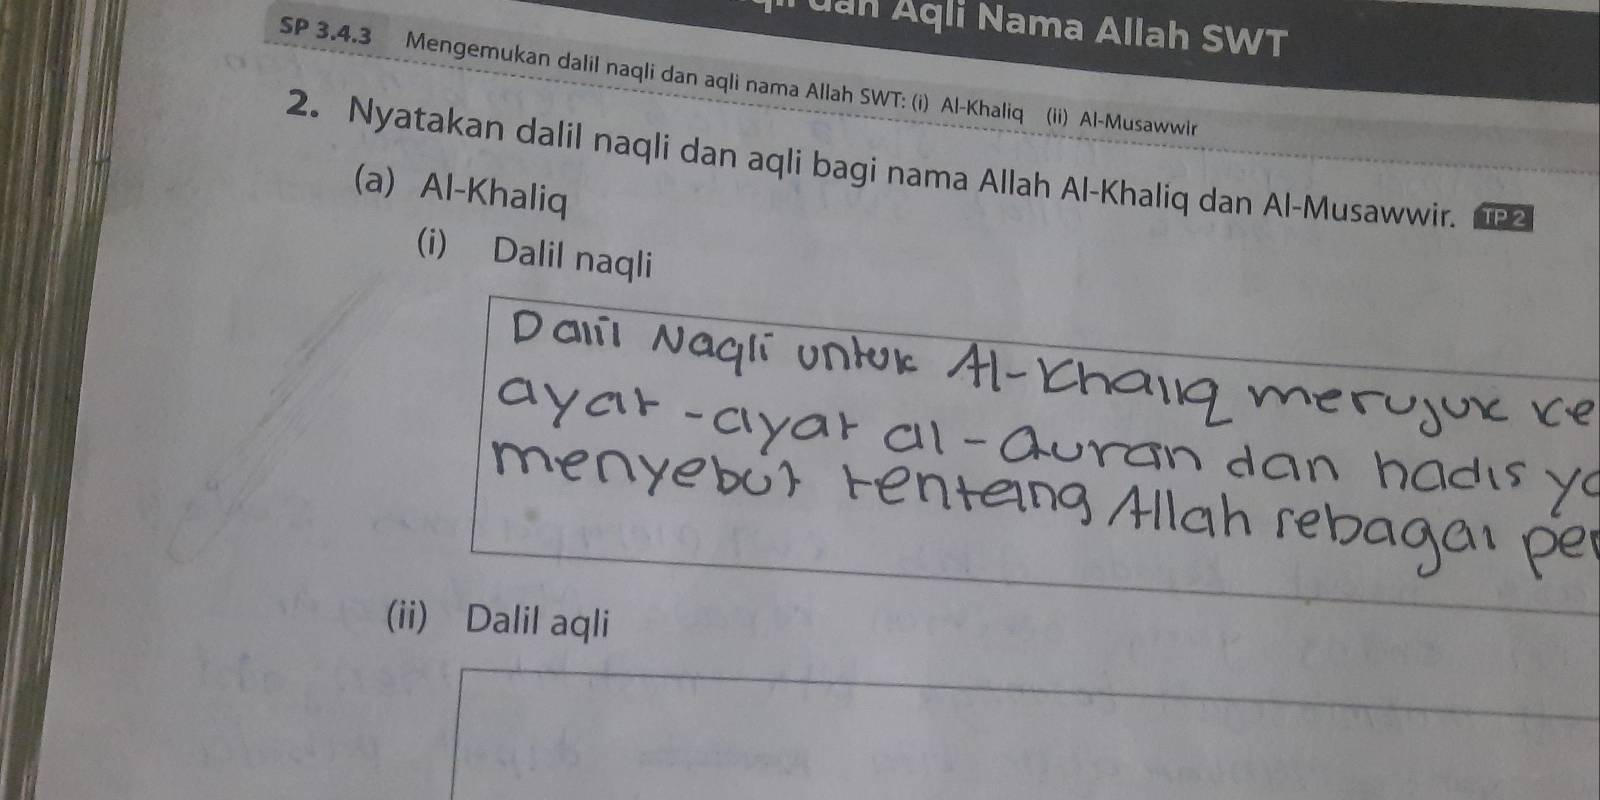 dan Aqli Nama Allah SWT
SP 3.4.3 Mengemukan dalil naqli dan aqli nama Allah SWT: (i) Al-Khaliq (ii) Al-Musawwir
2. Nyatakan dalil naqli dan aqli bagi nama Allah Al-Khaliq dan Al-Musawwir. TP 2
(a) Al-Khaliq
(i) Dalil naqli
Dalil Naqli untuk Al-Khaliq merujuk ke
ayat-ayat al-Quran dan hadis
menyebut tentang Allah sebagai
(ii) Dalil aqli